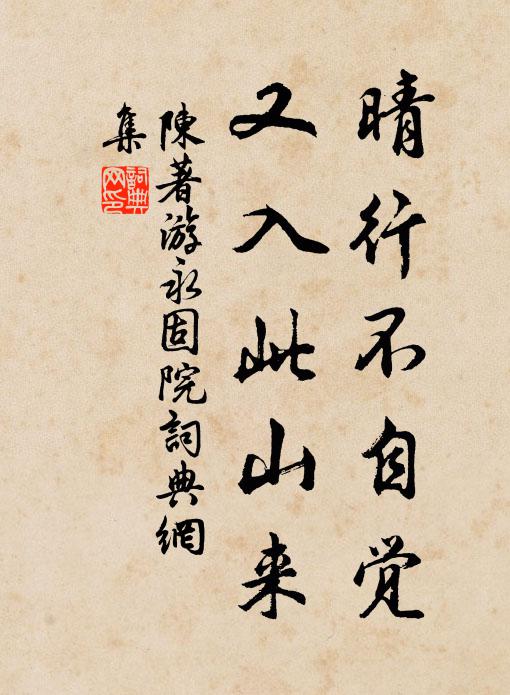 晴行不自觉
又入此山来
陳著游永固院詞典網
集
詞典
网印